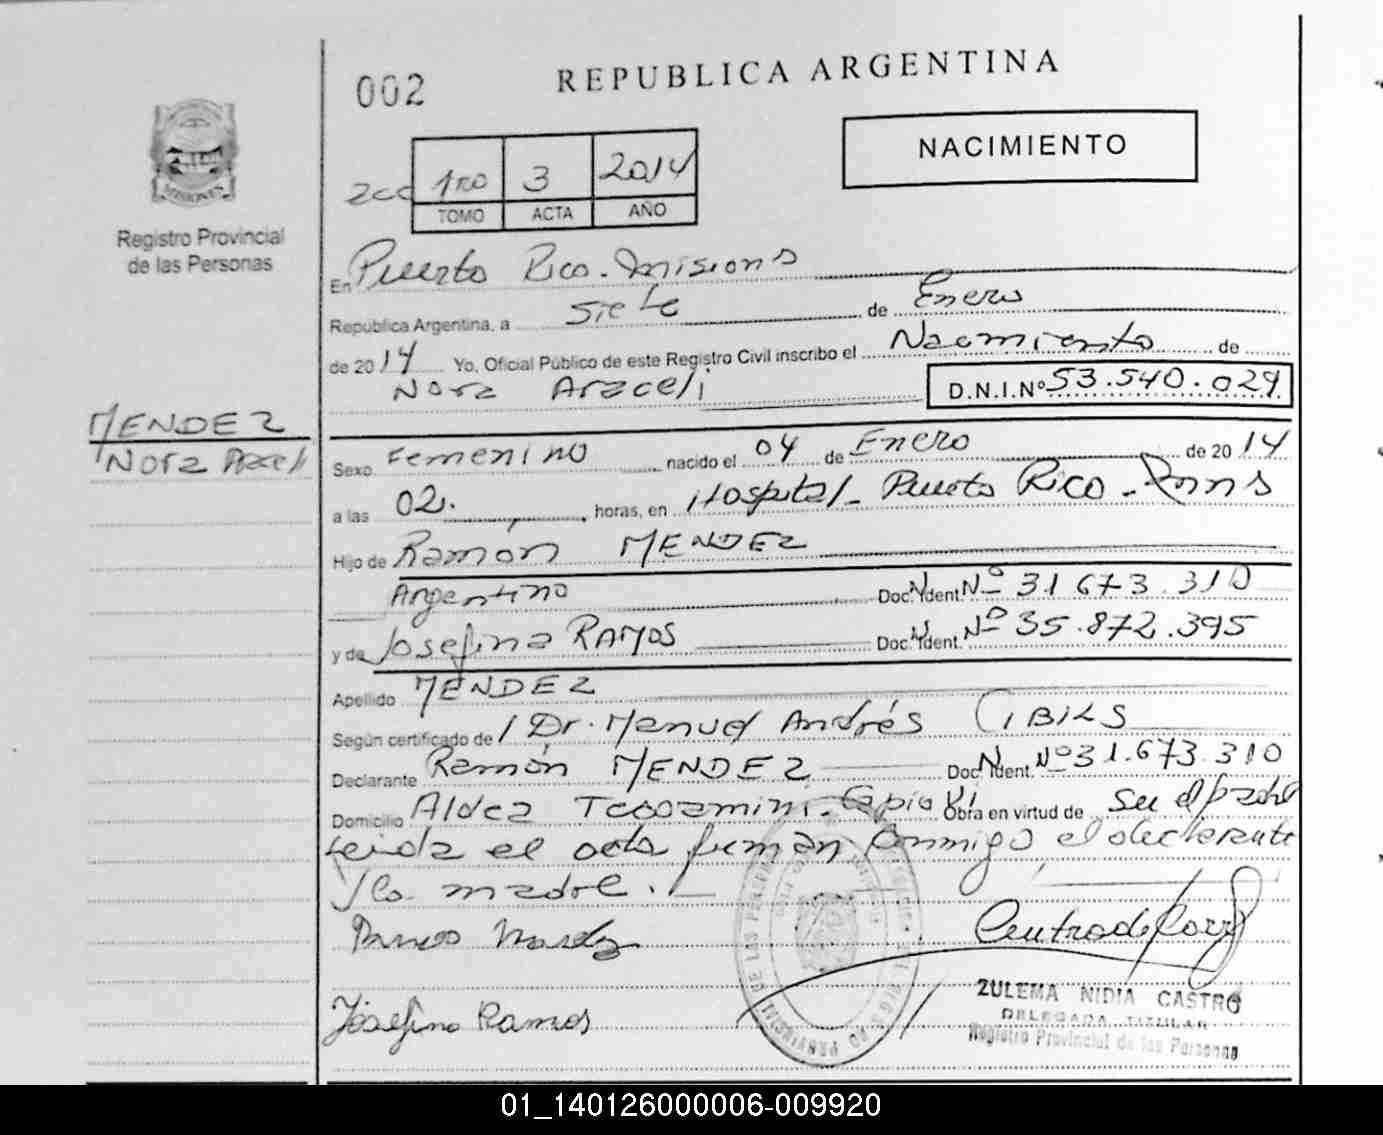 002
REPUBLICA ARGENTINA
NACIMIENTO
1ro 3 2014
TOMO ACTA AÑO
MISIONES
Registro Provincial
de las Personas
En Puerto Rico - Misions
República Argentina, a siete de Enero
de 2014 Yo, Oficial Público de este Registro Civil inscribo el Nacimiento de
Nora Araceli D.N.I.Nº 53.540.029
MENDEZ
Nora Araceli
Sexo Femenino nacido el 04 de Enero de 2014
a las 02. horas, en Hospital - Puerto Rico - Mns
Hijo de Ramón MENDEZ
Argentino Doc. N. Ident. Nº 31.673.310
y de Josefina RAMOS Doc. N. Ident. Nº 35.872.395
Apellido MENDEZ
Según certificado de / Dr. Manuel Andrés CIBILS
Declarante Ramón MENDEZ Doc. N. Ident. Nº 31.673.310
Domicilio Aldea Obra en virtud de su d/padre
leida el acta firman conmigo el declarante
y la madre.
Josefina Ramos
ZULEMA NIDIA CASTRO
DELEGADA TITULAR
Registro Provincial de las Personas
01_140126000006-009920